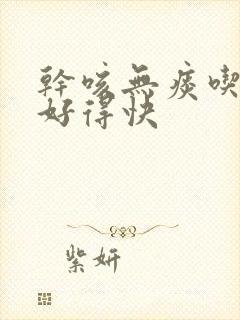 幹咳無痰喫
好得快
紫妍